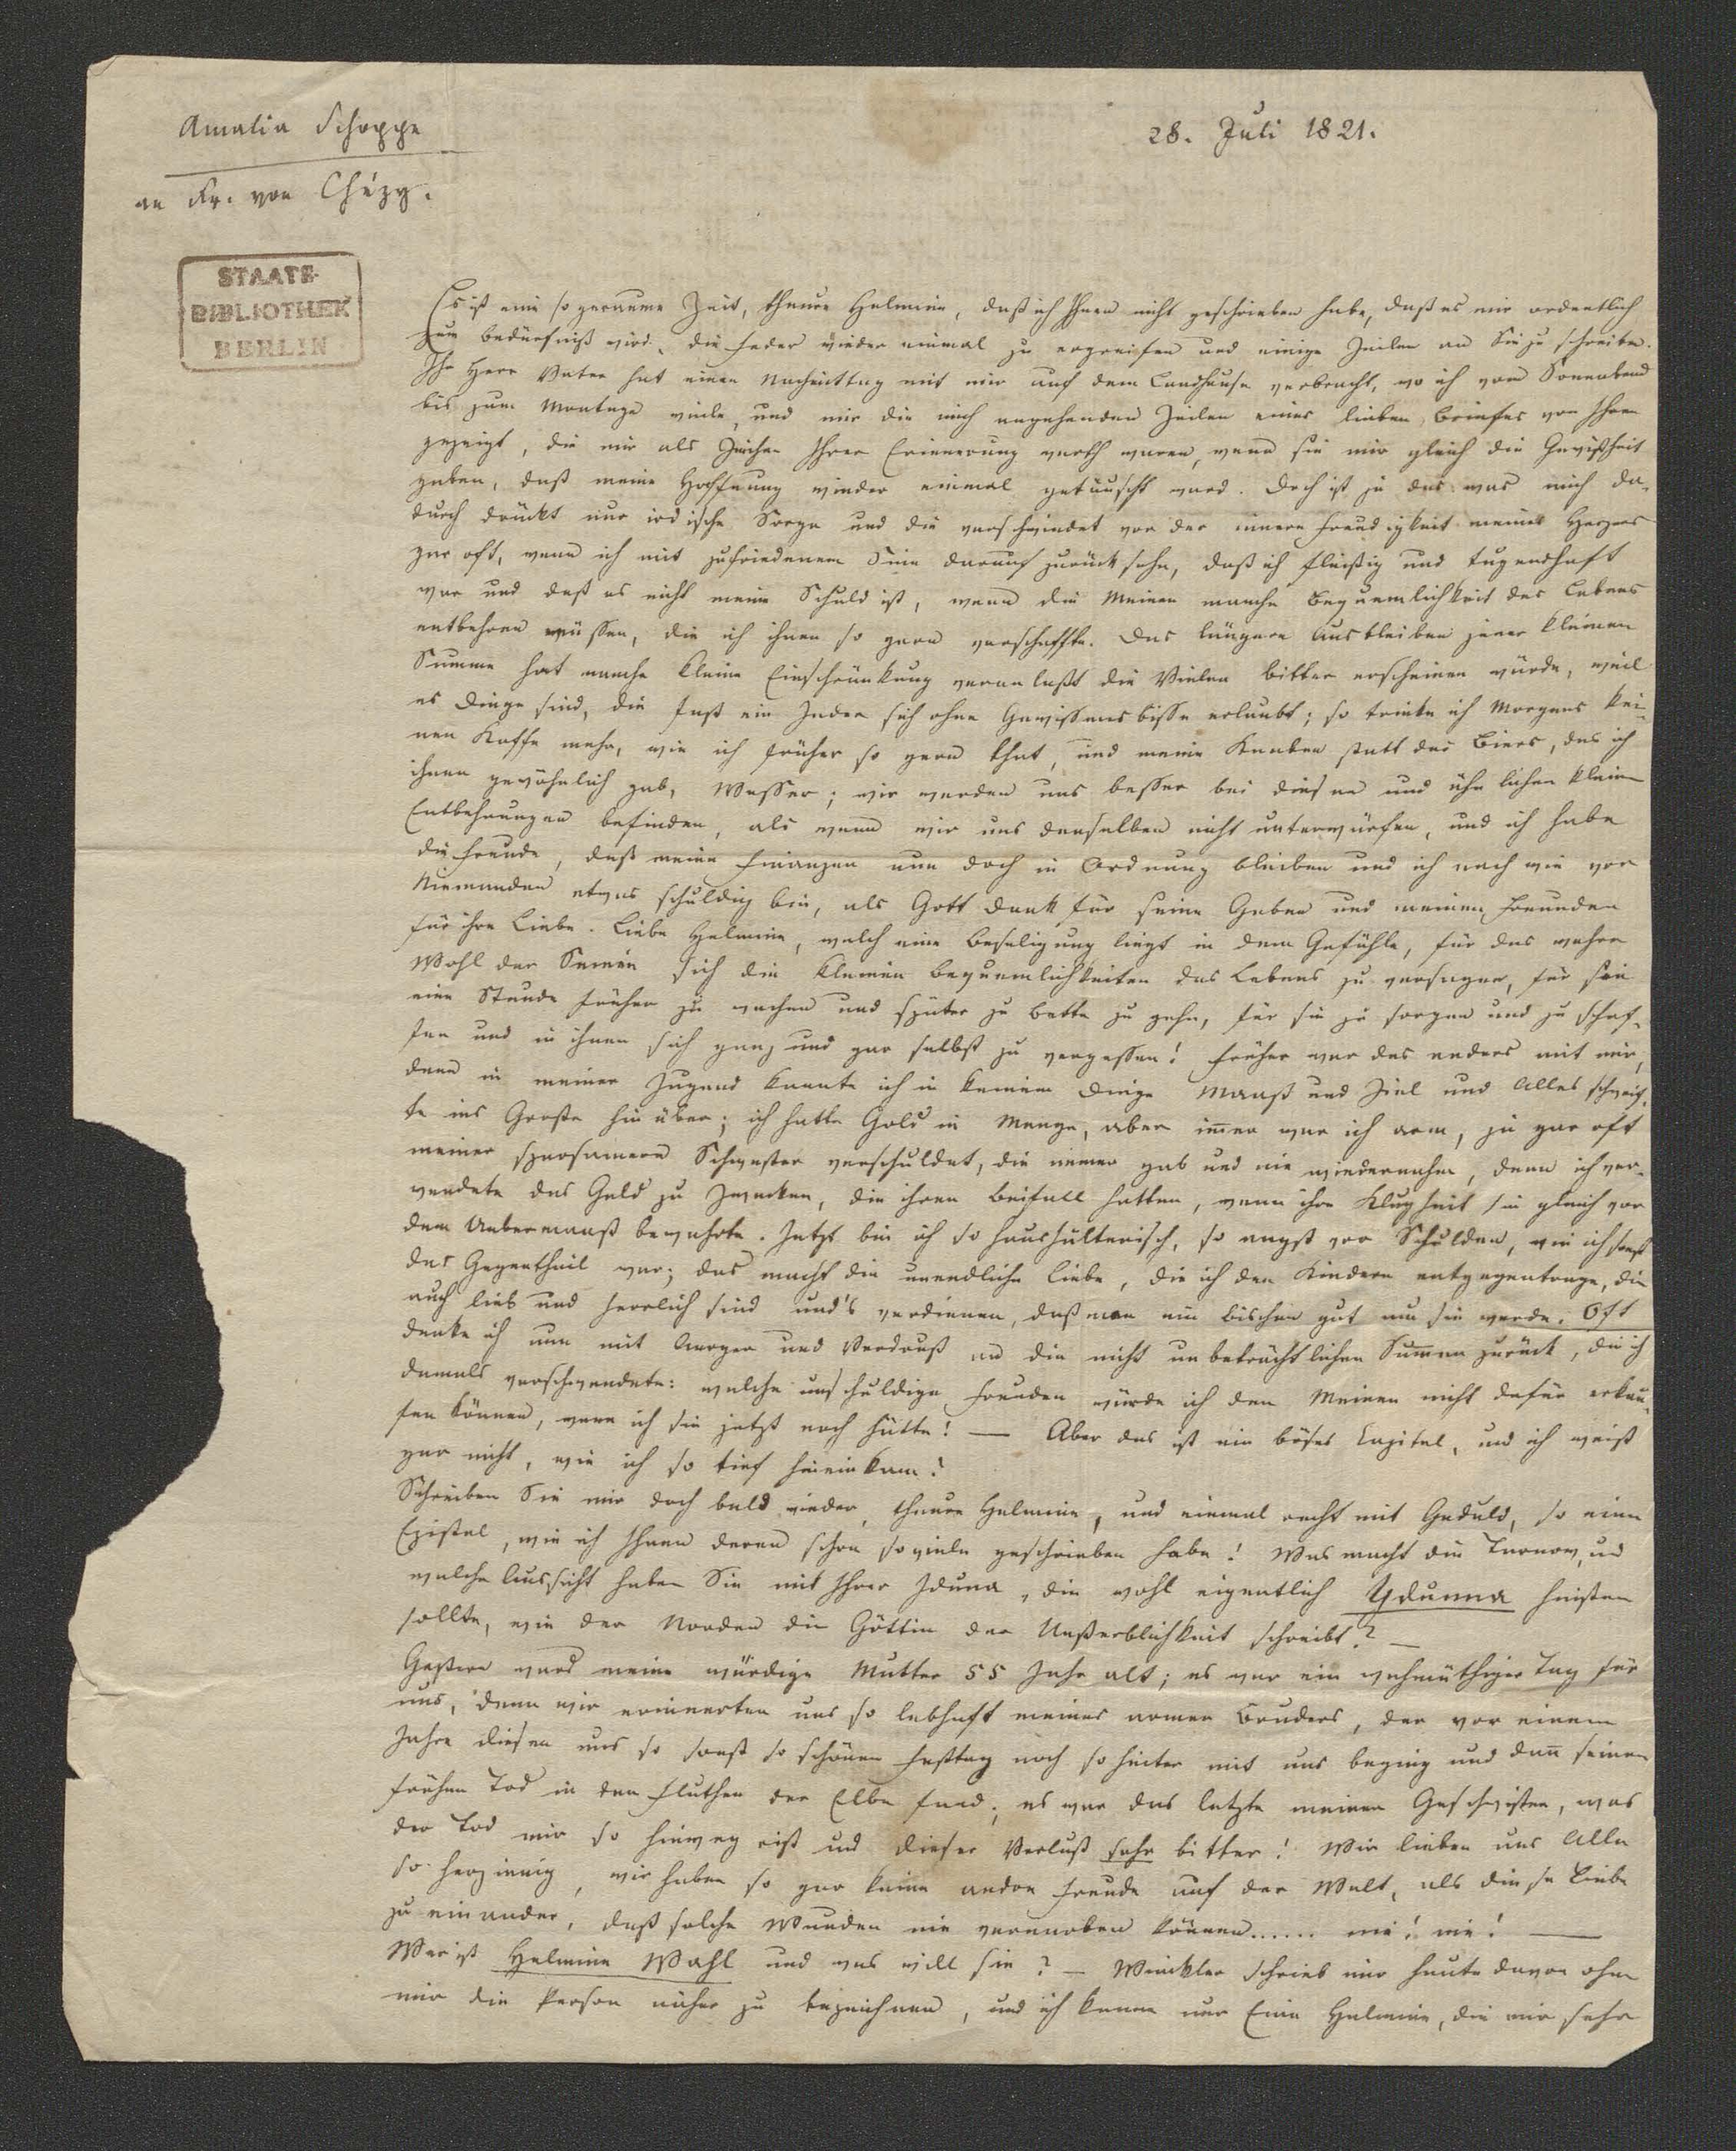 Amalia Schoppe
28. Juli 1821.
an Fr. von Chézy.
STAATS-
BIBLIOTHEK
BERLIN
Es ist eine so geraume Zeit, theure Helmine, daß ich Ihnen nicht geschrieben habe, daß es mir ordentlich
zum Bedürfniß wird, die Feder wieder einmal zu ergreifen und einige Zeilen an Sie zu schreiben.
Ihr Herr Vater hat einen Nachmittag mit mir auf dem Landhause verbracht, wo ich vom Sonnabend
bis zum Montage weile, und mir die mich angehenden Zeilen eines lieben Briefes von Ihnen
gezeigt, die mir als Zeichen Ihrer Erinnerung werth waren, wenn sie mir gleich die Gewißheit
gaben, daß meine Hoffnung wieder einmal getäuscht ward. Doch ist ja das was mich da-
durch drückt nur irdische Sorge und die verschwindet vor der innern Freudigkeit meines Herzens
gar oft, wenn ich mit zufriedenem Sinn darauf zurück sehe, daß ich fleißig und tugendhaft
war und daß es nicht meine Schuld ist, wenn die Meinen manche Bequemlichkeit des Lebens
entbehren müssen, die ich ihnen so gern verschaffte. Das längere Ausbleiben jener kleinen
Summe hat manche kleine Einschränkung veranlaßt die Vielen bitter erscheinen würde, weil
es Dinge sind, die fast ein Jeder sich ohne Gewissensbisse erlaubt; so trinke ich Morgens kei-
nen Kaffe mehr, wie ich früher so gern that, und meine Knaben statt des Biers, das ich
ihnen gewöhnlich gab, Wasser; wir werden uns besser bei diesen und ähnlichen kleinen
Entbehrungen befinden, als wenn wir uns denselben nicht unterwürfen, und ich habe
die Freude, daß meine Finanzen nun doch in Ordnung bleiben und ich nach wie vor
Niemanden etwas schuldig bin, als Gott Dank für seine Gaben und meinen Freunden
für ihre Liebe. Liebe Helmine, welch eine Beseligung liegt in dem Gefühle, für das wahre
Wohl der Seinen sich die kleinen Bequemlichkeiten des Lebens zu versagen, für sie
eine Stunde früher zu wachen und später zu Bette zu gehn, für sie zu sorgen und zu schaf-
fen und in ihnen sich ganz und gar selbst zu vergessen! Früher war das anders mit mir,
denn in meiner Jugend kannte ich in keinem Dinge Maaß und Ziel und Alles schweif-
te ins Große hinüber; ich hatte Gold in Menge, aber immer war ich arm, ja gar oft
meiner sparsamern Schwester verschuldet, die immer gab und nie wiedernahm, denn ich ver-
wendete das Geld zu Zwecken, die ihren Beifall hatten, wenn ihre Klugheit sie gleich vor
dem Uebermaaß bewahrte. Jetzt bin ich so haushälterisch, so angst vor Schulden, wie ich sonst
das Gegentheil war; das macht die unendliche Liebe, die ich den Kindern entgegentrage, die
auch lieb und herrlich sind und's verdienen, daß man ein bischen gut um sie werde. Oft
denke ich nun mit Aerger und Verdruß an die nicht unbeträchtlichen Summen zurück, die ich
damals verschwendete: welche unschuldige Freuden würde ich den Meinen nicht dafür erkau-
fen können, wenn ich sie jetzt noch hätte! — Aber das ist ein böses Capitel, und ich weiß
gar nicht, wie ich so tief hineinkam!
Schreiben Sie mir doch bald wieder, theure Helmine, und einmal recht mit Geduld, so eine
Epistel, wie ich Ihnen deren schon so viele geschrieben habe! Was macht die Tarnow, und
welche Aussicht haben Sie mit Ihrer Iduna, die wohl eigentlich Ydunna heißen
sollte, wie der Norden die Göttin der Unsterblichkeit schreibt? —
Gestern ward meine würdige Mutter 55 Jahr alt; es war ein wehmüthiger Tag für
uns, denn wir erinnerten uns so lebhaft meines armen Bruders, der vor einem
Jahre diesen uns so sonst so schönen Festtag noch so heiter mit uns beging und dann seinen
frühen Tod in den Fluthen der Elbe fand; es war das letzte meiner Geschwister, was
der Tod mir so hinweg riß und dieser Verlust sehr bitter! Wir lieben uns Alle
so herzinnig, wir haben so gar keine andre Freude auf der Welt, als diese Liebe
zu einander, daß solche Wunden nie vernarben können...... nie! nie! —
Wer ist Helmine Wahl und was will sie? — Winckler schrieb mir heute davon ohne
mir die Person näher zu bezeichnen, und ich kenne nur Eine Helmine, die mir sehr